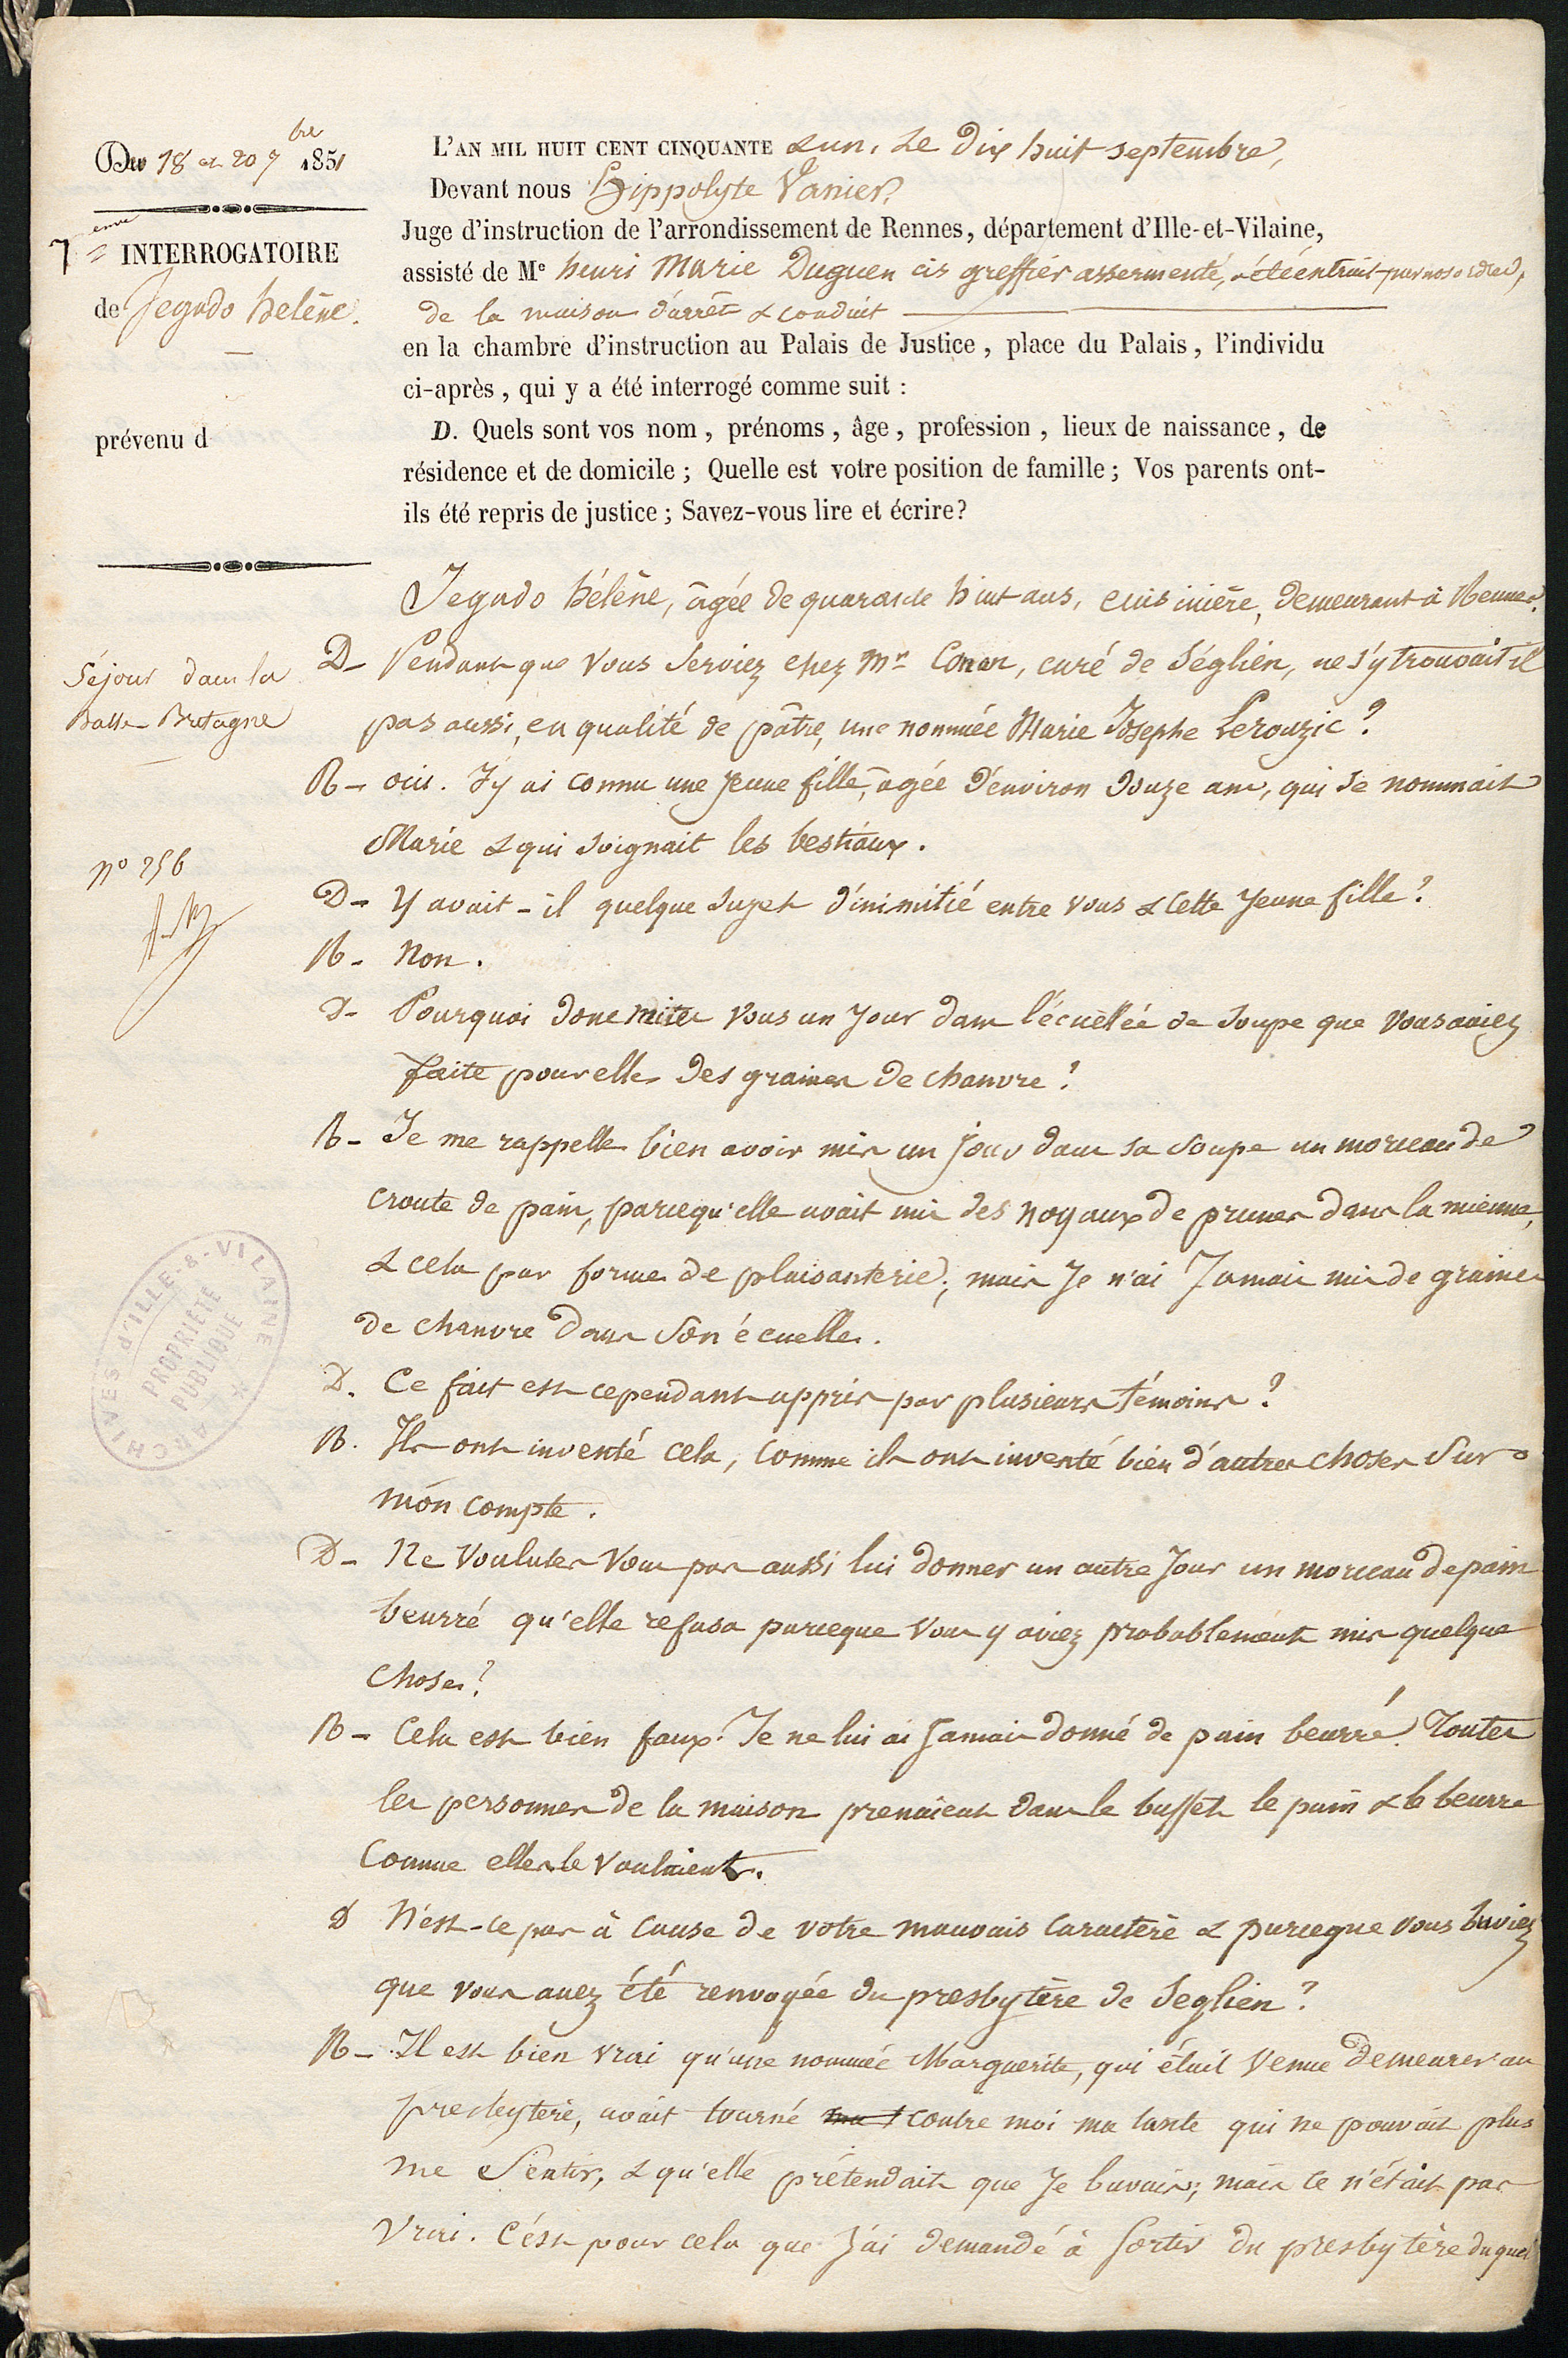 Du 18 et 20 7bre 1851
7eme INTERROGATOIRE
de Jegado helène.
prévenu d
L'AN MIL HUIT CENT CINQUANTE & un, Le Dix huit septembre,
Devant nous Hippolyte Vanier,
Juge d'instruction de l'arrondissement de Rennes, département d'Ille-et-Vilaine,
assisté de Me henri Marie Duguen cis greffier assermenté, a été extrait par nos ordres,
de la maison d'arrêt & conduit
en la chambre d'instruction au Palais de Justice, place du Palais, l'individu
ci-après, qui y a été interrogé comme suit :
D. Quels sont vos nom, prénoms, âge, profession, lieux de naissance, de
résidence et de domicile ; Quelle est votre position de famille ; Vos parents ont-
ils été repris de justice ; Savez-vous lire et écrire ?
Jegado hélène, âgée de quarante huit ans, cuisinière, demeurant à Rennes.
Séjour dans la
Basse-Bretagne
D- Pendant que vous serviez chez Mr Conan, curé de Séglien, ne s'y trouvait il
pas aussi, en qualité de pâtre, une nommée Marie Josephe Lerouzic ?
R- oui. J'y ai connu une jeune fille, âgée d'environ douze ans, qui se nommait
Marie & qui soignait les bestiaux.
no 256
D- Y avait-il quelque sujet d'inimitié entre vous & cette jeune fille ?
R- Non.
D- Pourquoi donc mites vous un jour dans l'écuellée de soupe que vous aviez
faite pour elle des graines de chanvre ?
R- Je me rappelle bien avoir mis un jour dans sa soupe un morceau de
croute de pain, parcequ'elle avait mis des noyaux de prunes dans la mienne,
& cela par forme de plaisanterie ; mais je n'ai jamais mis de graines
de chanvre dans son écuelle.
D. Ce fait est cependant appris par plusieurs témoins ?
R. Ils ont inventé cela, comme ils ont inventé bien d'autres choses sur
mon compte.
D- Ne voulutes vous pas aussi lui donner un autre jour un morceau de pain
beurré qu'elle refusa parceque vous y aviez probablement mis quelque
chose ?
R- Cela est bien faux. Je ne lui ai jamais donné de pain beurré. Toutes
les personnes de la maison prenaient dans le buffet le pain & le beurre
comme elles le voulaient.
D N'est-ce pas à cause de votre mauvais caractère & parceque vous buviez
que vous avez été renvoyée du presbytère de Seglien ?
R- Il est bien vrai qu'une nommée Marguerite, qui était venue demeurer au
presbytère, avait tourné contre moi ma tante qui ne pouvait plus
me sentir, & qu'elle prétendait que je buvais ; mais ce n'était pas
vrai. C'est pour cela que j'ai demandé à sortir du presbytère duquel
ARCHIVES d'ILLE-&-VILAINE
PROPRIÉTÉ
PUBLIQUE